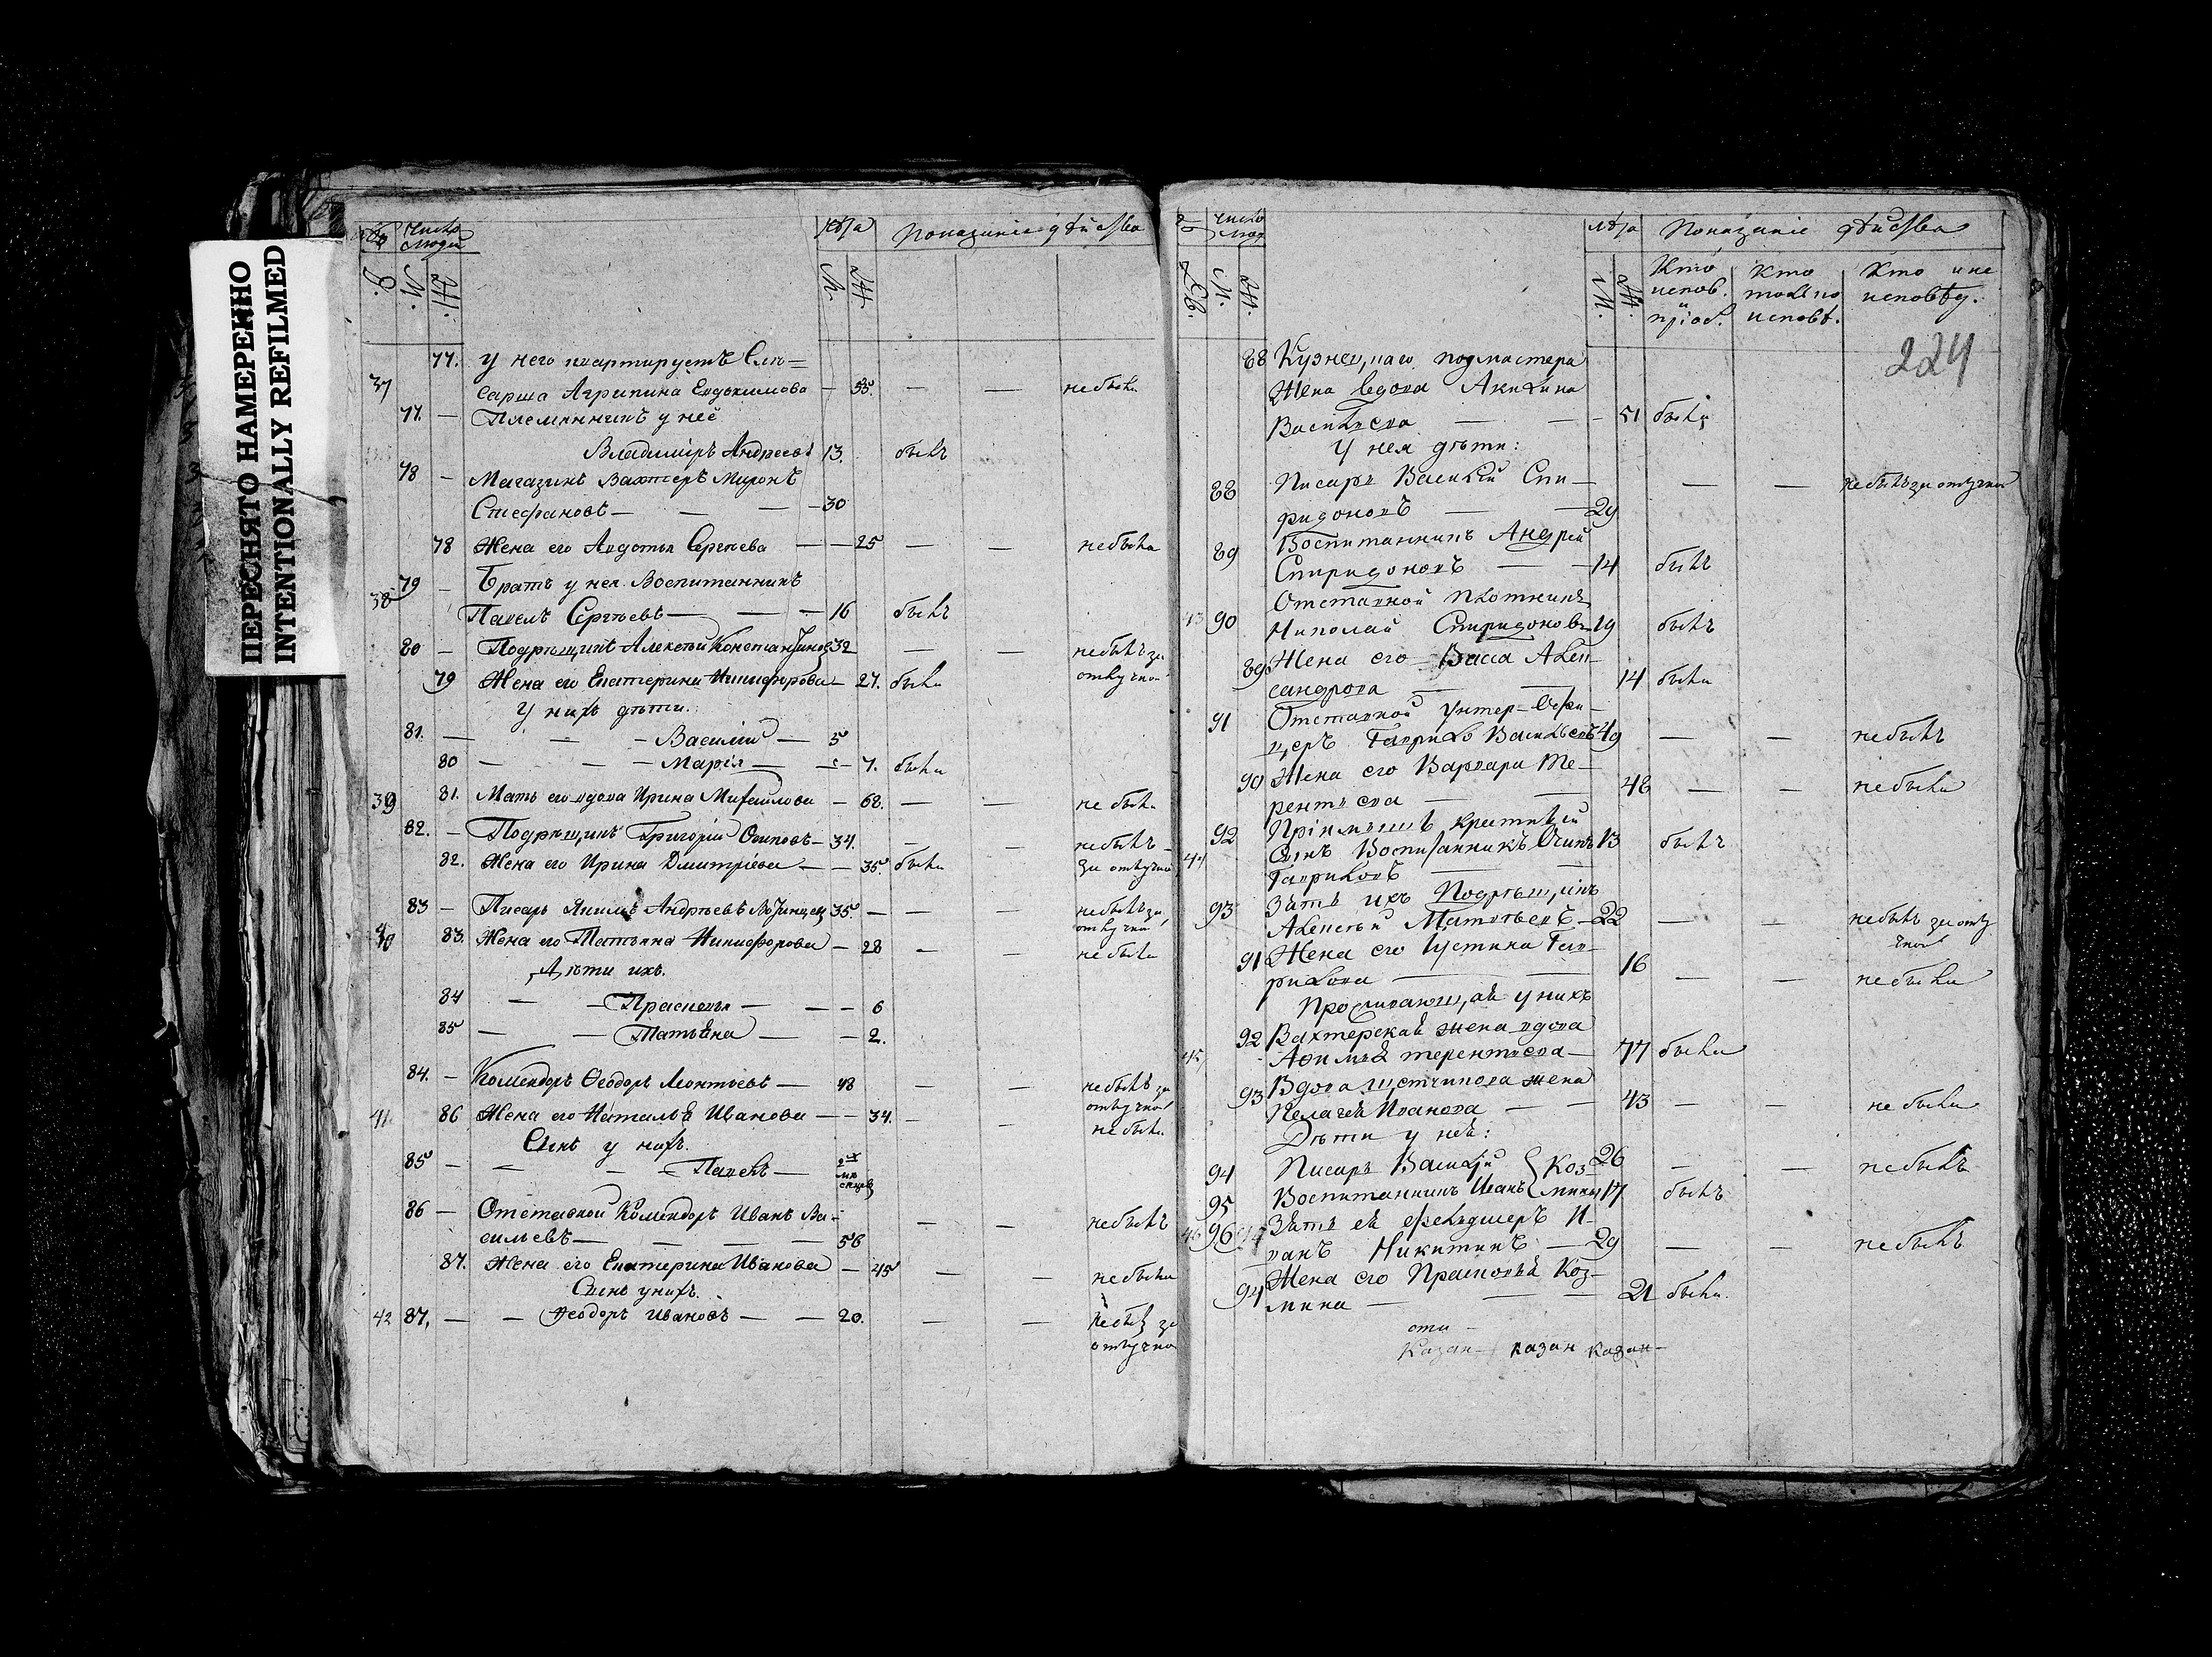 ПЕРЕСНЯТО НАМЕРЕННО
INTENTIONALLY REFILMED
Число людей
Лѣта
Показаніе дѣйства
М. Ж. М. Ж.
77. у него квартируетъ Слѣ=
37 сарша Агрипина Евдокимова — 55. — — небыла
77. — Племянникъ у неё
Владиміръ Андреевъ 13. былъ
78 — Магазинъ Вахтеръ Миронъ
Стефановъ — — — 30
78 Жена его Авдотья Сергѣева — — 25 — — небыла
79 — Братъ у нея Воспитанникъ
38
Павелъ Сергѣевъ — — — 16 былъ
80 — Подрѣщикъ Алексѣй Константиновъ 32 — — небылъ за
79 Жена его Екатерина Никифорова — 27. была отлучкой
У нихъ дѣти.
81. — — — Василій — 5
80 — — — Марія — — 7. была
39 81. Мать его вдова Ирина Михайлова — 68. — — не была
82. — Подрѣщикъ Григорій Осиповъ — 34. — — небылъ —
82. Жена его Ирина Дмитріева — — 35. была за отлучкой
83 — Писарь Якимъ Андрѣевъ 35 — — — небылъ за
отлучкой
40 83. Жена его Татьяна Никифорова — 28 — — не была
Дѣти ихъ.
84 — — Прасковья — — — 6
85 — — Татьяна — — 2.
84. — Комендоръ Ѳеодоръ Леонтьевъ — 48 — — небылъ за
отлучкой
41 86 Жена его Наталья Иванова — — 34. — — не была
Сынъ у нихъ.
85 — — — Павелъ — 2хъ
мѣ
сяцевъ
86 — Отставной Комендоръ Иванъ Ва-
сильевъ — — — — 56 — — небылъ
87. Жена его Екатерина Иванова — 45 — — не была
Сынъ у нихъ.
42 87. — — Ѳеодоръ Ивановъ — — 20. — — небылъ за
отлучкой
Число люд
Лѣта
Показаніе дѣйства
М. Ж. М. Ж.
Кто испов. и пріоб.
Кто только исповѣ.
Кто и не исповѣд.
224
88 Кузнечнаго подмастера
Жена вдова Акилина
Васильева — — — 51 была
У нея дѣти:
88 Писарь Василій Спи-
ридоновъ — — 29 — — небылъ за отлучкой
89 Воспитанникъ Андрей
Спиридоновъ — — 14 былъ
Отставной плотникъ
43 90 Николай Спиридоновъ 19 былъ
89 Жена его Васса Алек-
сандрова — — 14 была
91 Отставной Унтер-Офи-
церъ Гаврило Васильевъ 49 — — небылъ
90 Жена его Варвара Те-
рентьева — — 48 — — небыла
92 Пріимышъ крестный
44 Сынъ Воспитанникъ Осипъ 13 былъ
Гавриловъ —
93 Зять ихъ Подрѣщикъ
Алексѣй Матвѣевъ — 22 — — небылъ за отлу
чкой
91 Жена его Іустина Гав-
рилова — — 16 — — небыла
Проживающая у нихъ
92 Вахтерская жена вдова
45 Афимья Терентьева — 77 была
93 Вдова жена
Пелагея Иванова — — 43 — — не была
Дѣти у неё:
94 Писарь Василій { Коз- 26 — — небылъ
95 Воспитанникъ Иванъ { мины 17 былъ
46 96 Зять ея фельдшеръ И-
ванъ Никитинъ — 29 — — небылъ
94 Жена его Прасковья Коз-
мина — — — 21 была.
Казан- казан казан-